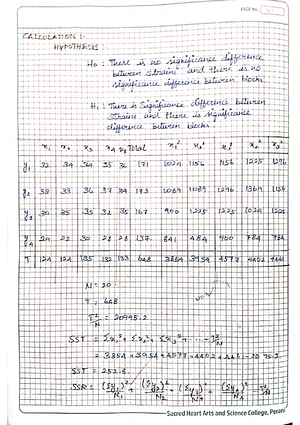 PAGE No.
CALCULATION :-
HYPOTHESIS :-
H₀ : There is no significance difference
between strains and there is no
significance difference between blocks
H₁ : There is Significance difference between
strains and there is significance
difference between blocks
x₁ x₂ x₃ x₄ x₅ Total x₁² x₂² x₃² x₄² x₅²
y₁ 32 34 34 35 36 171 1024 1156 1156 1225 1296
y₂ 33 33 36 37 34 173 1089 1089 1296 1369 1156
y₃ 30 35 35 32 35 167 900 1225 1225 1024 1225
y₄ 29 22 30 28 28 137 841 484 900 784 784
T 124 124 135 132 133 648 3854 3954 4577 4402 4461
N = 20
T = 648
T²/N = 20995.2
SST = Σx₁² + Σx₂² + Σx₃² + ... - T²/N
= 3854 + 3954 + 4577 + 4402 + 4461 - 20995.2
SST = 252.8
SSR = (Σy₁)²/N₁ + (Σy₂)²/N₂ + (Σy₃)²/N₃ + (Σy₄)²/N₄ - T²/N
Sacred Heart Arts and Science College, Perani